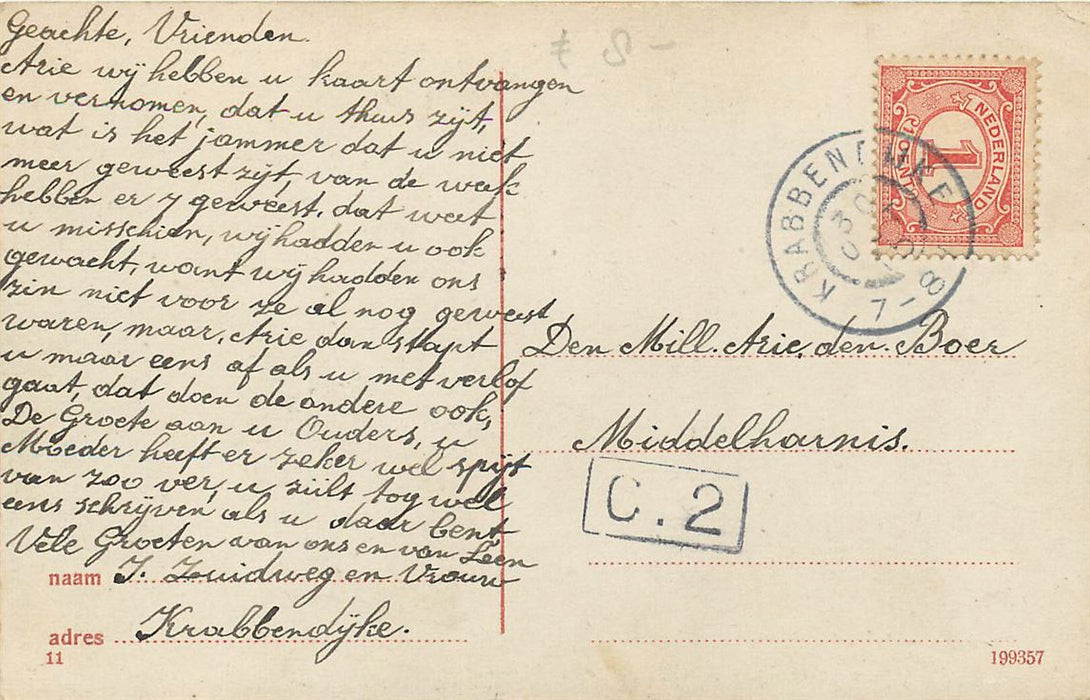 Geachte, Vrienden.
Arie wij hebben u kaart ontvangen
en vernomen, dat u thuis zijt,
wat is het jammer dat u niet
meer geweest zijt, van de week
hebben er 7 geweest, dat weet
u misschien, wij hadden u ook
gewacht, want wij hadden ons
zin niet voor ze al nog geweest
waren, maar, Arie dan stapt
u maar eens af als u met verlof
gaat, dat doen de andere ook,
De Groete aan u Ouders, u
Moeder heeft er zeker wel spijt
van zoo ver, u zult tog wel
eens schrijven als u daar bent
Vele Groeten van ons en van Leen
naam J. Zuidweg en Vrouw
adres Krabbendijke.
11
NEDERLAND
1
CENT
KRABBENDIJKE
7-8
Den Mill. Arie, den Boer
Middelharnis.
C.2
199357